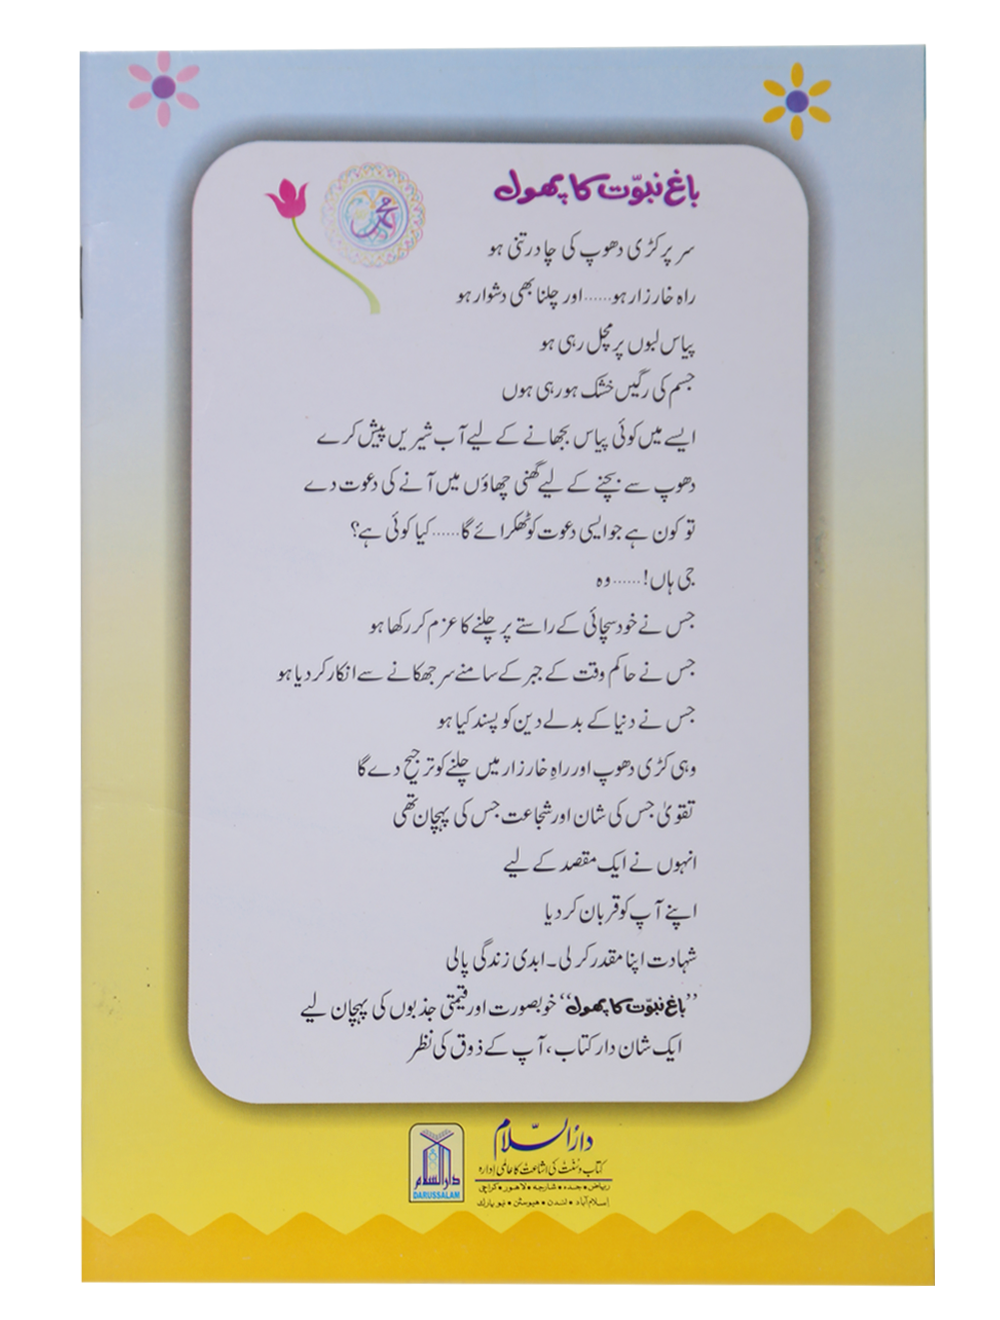 باغِ نبوّت کا پھول
محمد
سر پر کڑی دھوپ کی چادر تنی ہو
راہ خارزار ہو......اور چلنا بھی دشوار ہو
پیاس لبوں پر مچل رہی ہو
جسم کی رگیں خشک ہو رہی ہوں
ایسے میں کوئی پیاس بجھانے کے لیے آب شیریں پیش کرے
دھوپ سے بچنے کے لیے گھنی چھاؤں میں آنے کی دعوت دے
تو کون ہے جو ایسی دعوت کو ٹھکرائے گا......کیا کوئی ہے؟
جی ہاں!......وہ
جس نے خود سچائی کے راستے پر چلنے کا عزم کر رکھا ہو
جس نے حاکم وقت کے جبر کے سامنے سر جھکانے سے انکار کر دیا ہو
جس نے دنیا کے بدلے دین کو پسند کیا ہو
وہی کڑی دھوپ اور راہِ خارزار میں چلنے کو ترجیح دے گا
تقویٰ جس کی شان اور شجاعت جس کی پہچان تھی
انہوں نے ایک مقصد کے لیے
اپنے آپ کو قربان کر دیا
شہادت اپنا مقدر کر لی۔ ابدی زندگی پالی
”باغِ نبوّت کا پھول“ خوبصورت اور قیمتی جذبوں کی پہچان لیے
ایک شان دار کتاب، آپ کے ذوق کی نظر
دارالسّلام
کتاب و سنّت کی اشاعت کا عالمی ادارہ
ریاض • جدہ • شارجہ • لاہور • کراچی
اسلام آباد • لندن • ہیوسٹن • نیو یارک
دارالسلام
DARUSSALAM